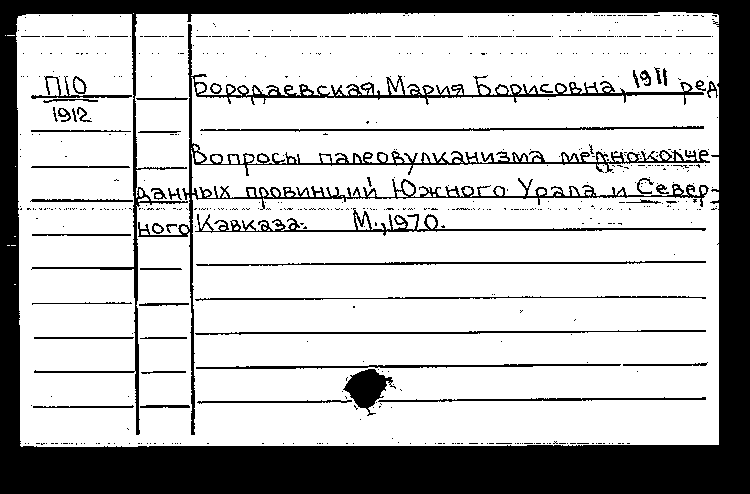 П10 Бородаевская, Мария Борисовна, 1911 ред
1912
Вопросы палеовулканизма медноколче-
данных провинций Южного Урала и Север-
ного Кавказа. М., 1970.